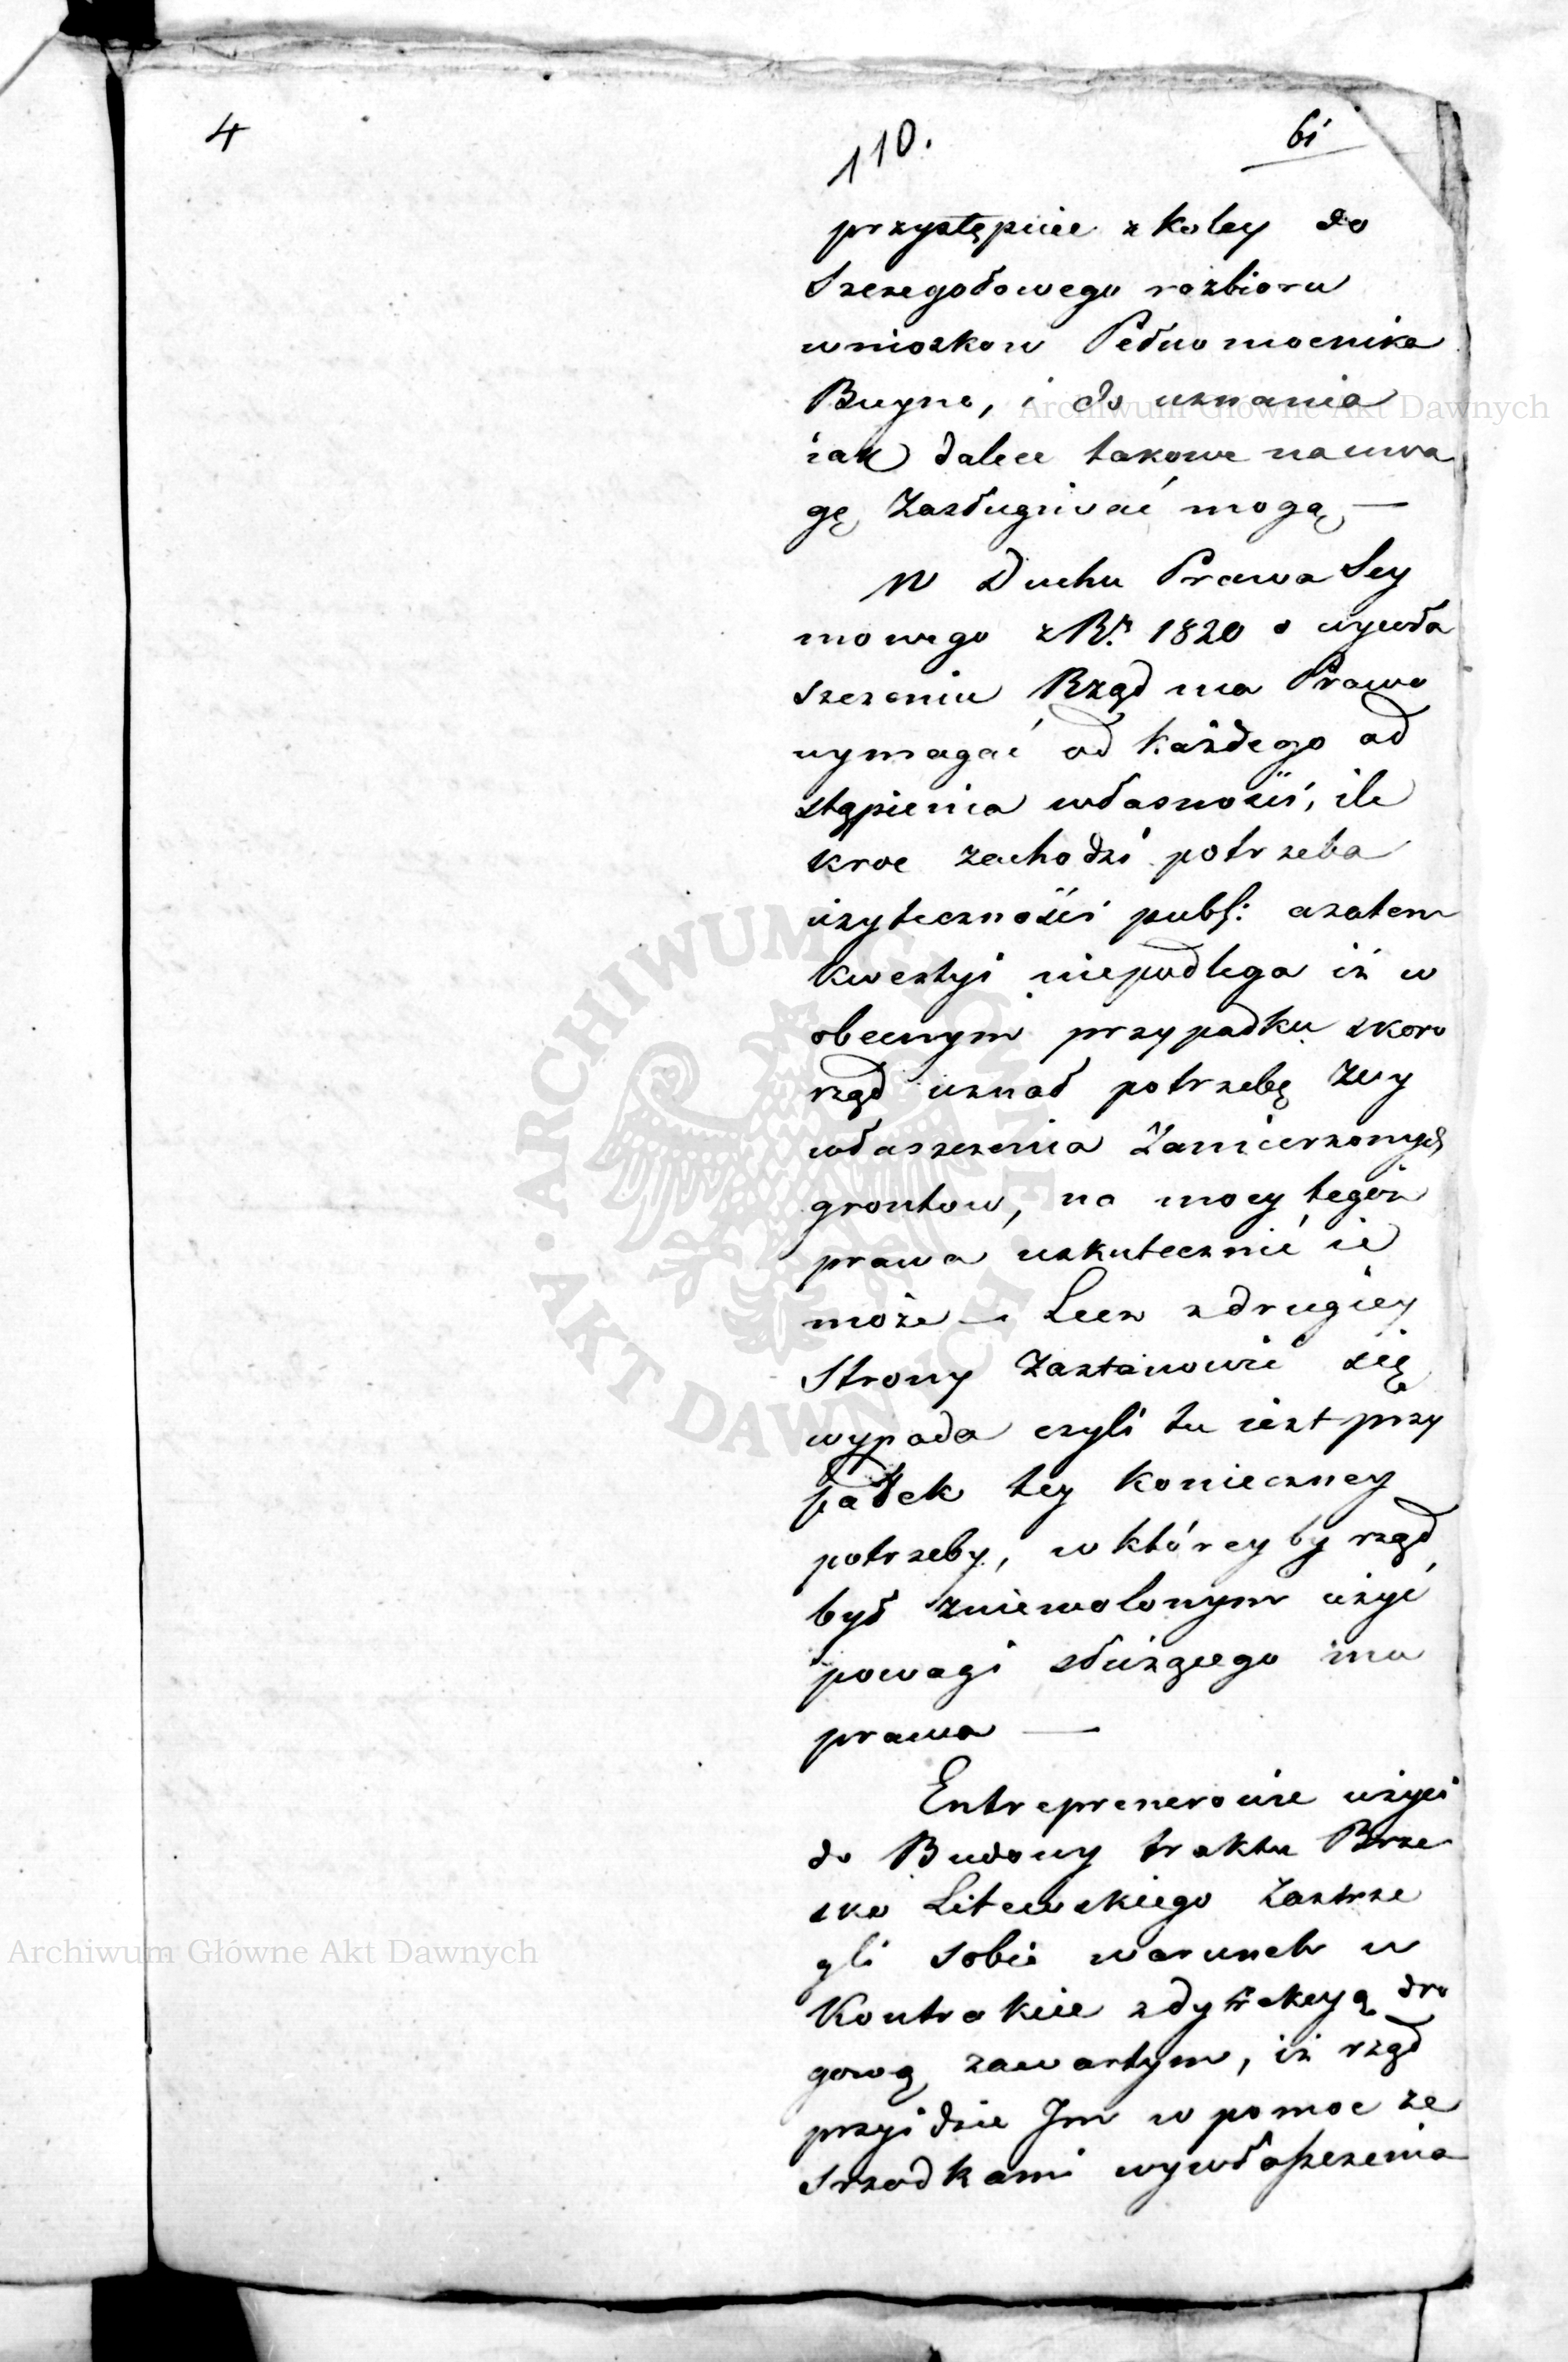 4
110.
61
przystępuie z koley do
Szczegołowego rozbioru
wnioskow Pełnomocnika
Buyno, i do uznania
iak dalece takowe na uwa
gę Zasługiwać mogą —
W Duchu Prawa Sey
mowego z R.ᵘ 1820 o wywła
szczeniu Rząd ma Prawo
wymagać od każdego od
stąpienia własności, ile
kroc zachodzi potrzeba
użyteczności publ: azatem
kwestyi niepodlega iż w
obecnym przypadku skoro
rząd uznał potrzebę Wy
właszczenia Zamierzonych
grontow, na mocy tegoż
prawa uskutecznić ie
może — Lecz z drugiey
Strony Zastanowic się
wypada czyli tu iest przy
padek tey konieczney
potrzeby, w którey by rząd
był zniewolonym użyć
powagi służącego mu
prawa —
Entreprenerowie użyci
do Budowy traktu Brze
sko Litewskiego Zastrze
gli Sobie warunek w
Kontrakcie z dyrekcyą dro
gową zawartym, iż rząd
przyidzie Im w pomoc ze
Srzodkami wywłaszczenia
Archiwum Główne Akt Dawnych
Archiwum Główne Akt Dawnych
ARCHIWUM GŁÓWNE • AKT DAWNYCH •